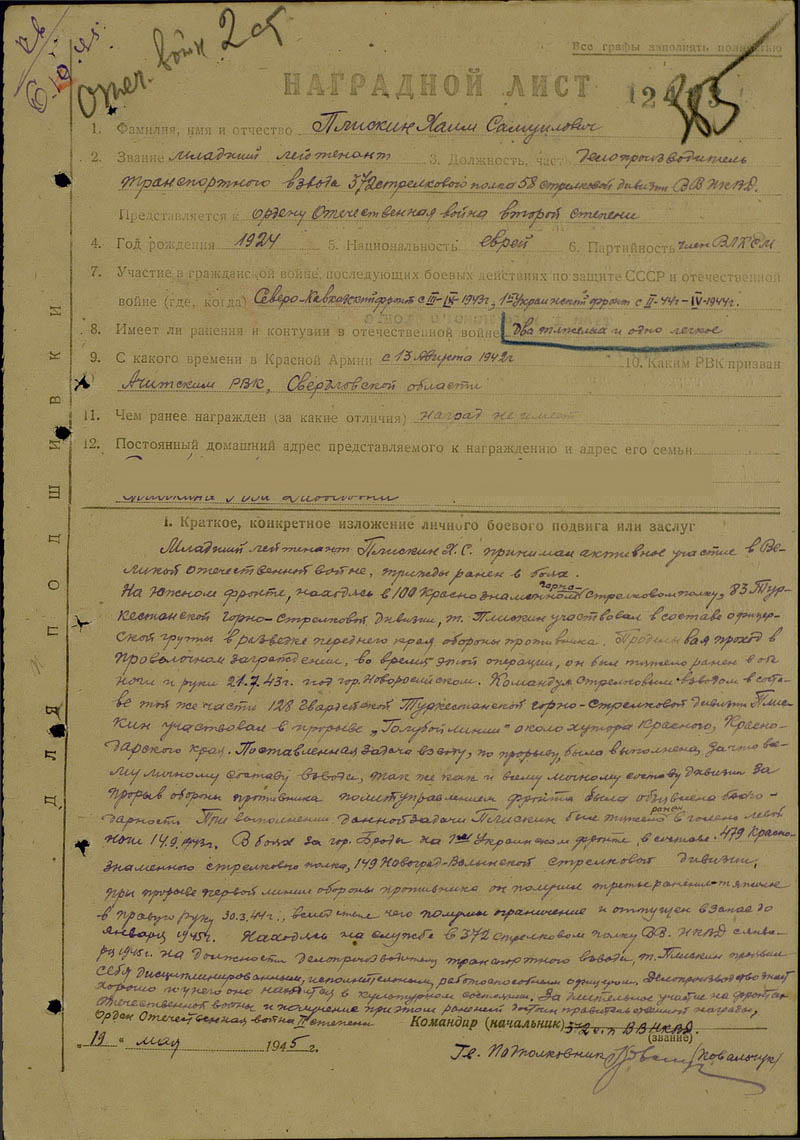 Отеч. войн 2 ст
385
Все графы заполнять полностью
НАГРАДНОЙ ЛИСТ
1. Фамилия, имя и отчество Плискин Хаим Самуилович
2. Звание младший лейтенант 3. Должность, часть делопроизводитель
транспортного взвода 372 стрелкового полка 58 стрелковой дивизии ВВ НКВД.
Представляется к ордену Отечественная война второй степени
4. Год рождения 1924 5. Национальность еврей 6. Партийность член ВЛКСМ
7. Участие в гражданской войне, последующих боевых действиях по защите СССР и отечественной
войне (где, когда) Северо-Кавказский фронт с III-IX-1943г, 1й Украинский фронт с II-44г-IV-1944г.
8. Имеет ли ранения и контузии в отечественной войне Два тяжелых и одно легкое
9. С какого времени в Красной Армии с 13 Августа 1942г 10. Каким РВК призван
Ачитским РВК, Свердловской области
11. Чем ранее награжден (за какие отличия) наград не имеет
12. Постоянный домашний адрес представляемого к награждению и адрес его семьи
ДЛЯ ПОДШИВКИ
I. Краткое, конкретное изложение личного боевого подвига или заслуг
Младший лейтенант Плискин Х.С. принимал активное участие в Ве-
ликой отечественной войне, трижды ранен в боях.
На Южном фронте, находясь в 100 Краснознаменном горно-стрелковом полку, 83 Тур-
кестанской горно-стрелковой дивизии, т. Плискин участвовал в составе офицер-
ской группы в разведке переднего края обороны противника. Проделывая проход в
проволочном заграждении, во время этой операции, он был тяжело ранен в обе
ноги и руки 21.7.43г. под гор. Новоросийском. Командуя стрелковым взводом в соста-
ве той же части 128 гвардейской Туркестанской горно-стрелковой дивизии Плис-
кин участвовал в прорыве „Голубой линии" около хутора Красного, Красно-
дарского края. Поставленная задача взводу, по прорыву, была выполнена, за что все-
му личному составу взвода, так же как и всему личному составу дивизии за
прорыв обороны противника политуправлением фронта была объявлена благо-
дарность. При выполнении данной задачи Плискин был тяжело ранен в голень левой
ноги 14.9.1943г. В боях за гор. Броды на 1ом Украинском фронте, в составе 479 Красно-
знаменного стрелкового полка, 149 Новоград-Волынской стрелковой дивизии,
при прорыве первой линии обороны противника он получил третье ранение
в правую руку 30.3.44г., вследствие чего получил ограничение и отпущен в запас до
января 1945г. Находясь на службе в 372 стрелковом полку ВВ. НКВД с янва-
ря 1945г. на должности делопроизводителя транспортного взвода, т. Плискин проявил
себя дисциплинированным, исполнительным, работоспособным офицером. Делопроизводство знает
хорошо и у него оно находится в культурном состоянии. За длительное участие на фронтах
Отечественной войны и получение при этом ранений достоин правительственной награды,
Орден Отечественная война II степени
Командир (начальник) 372 с.п ВВ НКВД.
(звание)
„19" мая 1945 г.
Гв. Подполковник (Ковальчук)